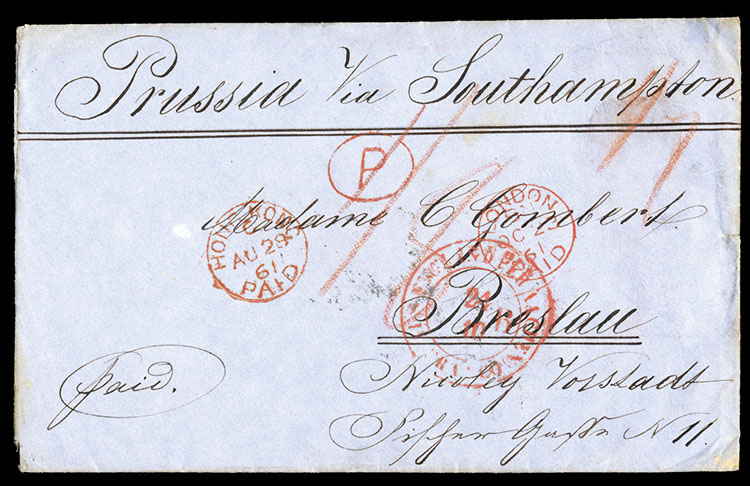 Prussia Via Southampton.
P
Madame C Gombert.
HONG KONG
AU 29
61
PAID
LONDON
OC
61
PAID
Breslau
Nicolay Vorstadt
Paid.
Fischer Gasse N 11.